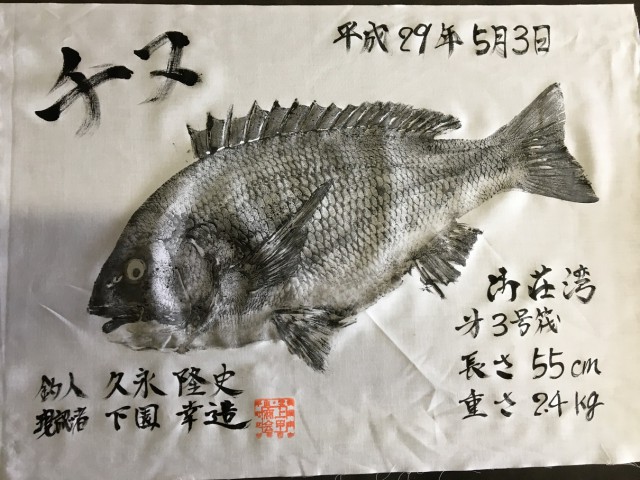 チヌ
平成29年5月3日
御荘湾
才3号筏
長さ 55cm
重さ 2.4kg
釣人 久永 隆史
現認者 下園 幸造